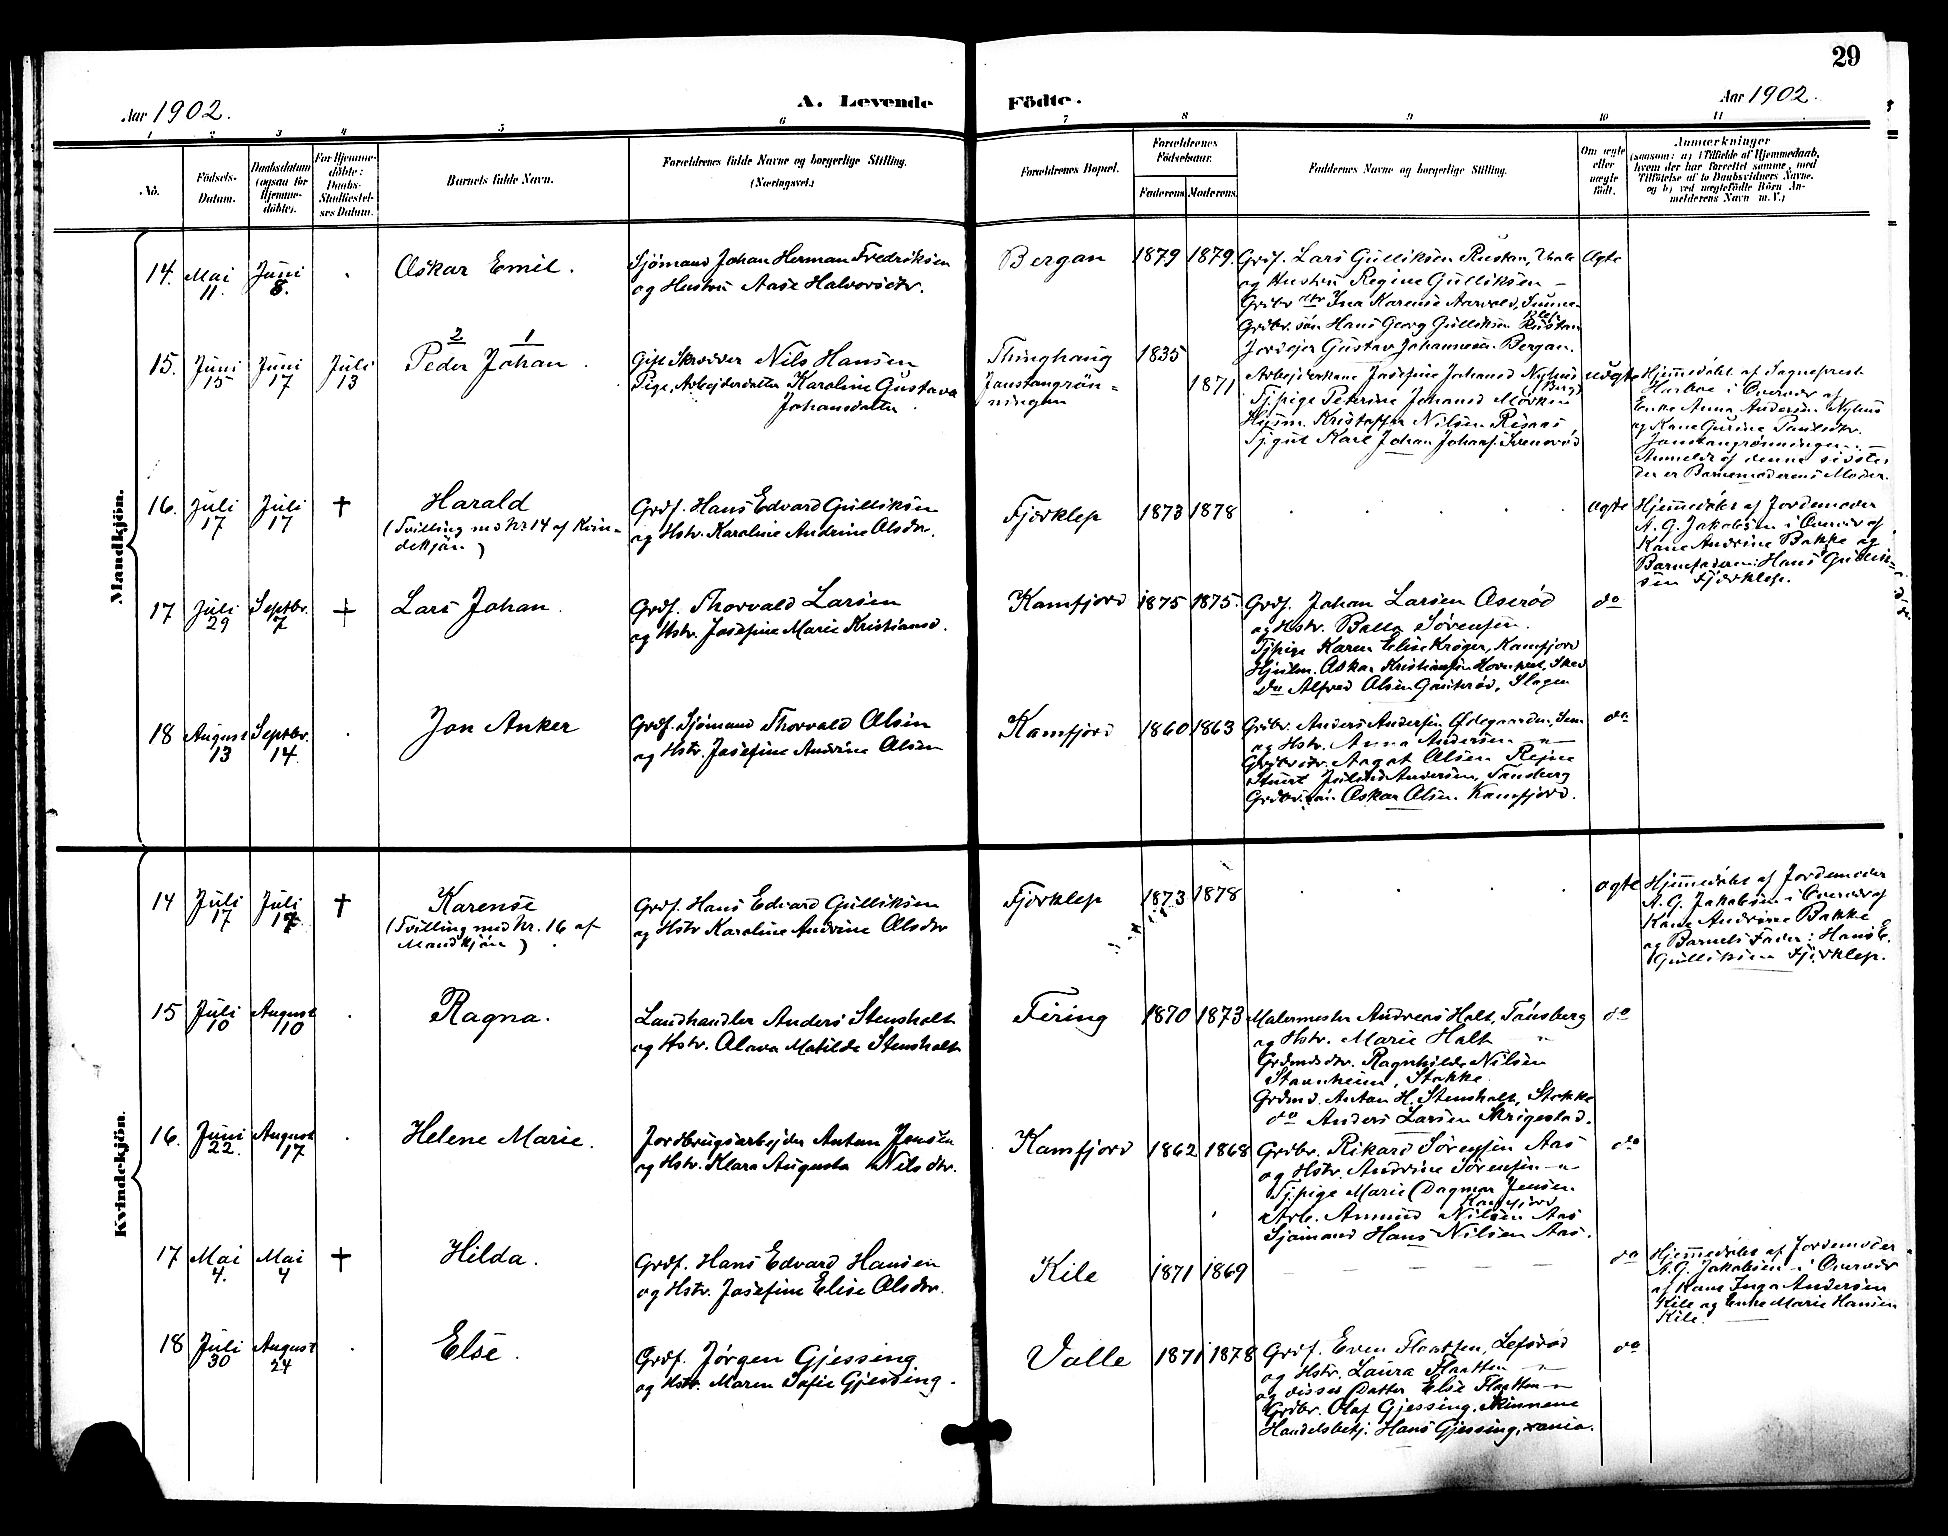 29
Aar 1902.
A. Levende
Födte.
Aar 1902.
1 2 3 4 5 6 7 8 9 10 11
No.
Födsels-Datum.
Daabsdatum (ogsaa for Hjemmedöbte).
For Hjemmedöbte: Daabs-Stadfæstelses Datum.
Barnets fulde Navn.
Forældrenes fulde Navne og borgerlige Stilling.
(Næringsvei.)
Forældrenes Bopæl.
Forældrenes Födselsaar.
Faderens. Moderens.
Faddernes Navne og borgerlige Stilling.
Om ægte eller uægte födt.
Anmærkninger
(saasom: a) i Tilfælde af Hjemmedaab,
hvem der har forrettet samme, med
Tilföielse af to Daabsvidners Navne,
og b) ved uægtefödte Börn An-
melderens Navn m. V.)
Mandkjön.
14. Mai 11. Juni 8. Oskar Emil.
Sjömand Johan Herman Fredriksen
og Hustru Aase Halvorsdtr.
Bergan 1879 1879.
Grdf. Lars Gulliksen Rustan,
og Hustru Regine Gulliksen –
Grdbr dtr Ina Karense Aarvold,
Grdbr. sön Hans Georg Gulliksen Rustan
Jordejer Gustav Johannesen Bergan.
Ægte
15. Juni 15 Juni 17 Juli 13
2 1
Peder Johan.
Gift Skræder Nils Hansen
Pige, Arbejderdatter Karoline Gustava
Johansdatter.
Thinghaug
Jonstangrön-
ningen
1835
1871
Arbejderkone Josefine Johansd Nyhus
(Berg)
Tj.pige Petrine Johansd Morken
Husm. Kristoffer Nilsen Risaas
Tj.gut Karl Johan Johansen
uægte
Hjemmedöbt af Sogneprest
Horboe i Overvær af
Enke Anna Andersen Nyhus
og Kone Gurine Paulsdtr.
Jonstangrönningen. –
Anmeldt af denne sidste,
der er Barnemoderens Moder.
16. Juli 17 Juli 17 † Harald
(Tvilling med Nr 14 af Kvin-
dekjön)
Grdf. Hans Edvard Gulliksen
og Hstr. Karoline Andrine Olsdtr.
Fjærklep 1873 1878
ægte
Hjemmedöbt af Jordemoder
A. G. Jakobsen i Overvær af
Kone Andrine Bakke og
Barnefaderen: Hans Gullik-
sen Fjærklep.
17 Juli 29 Septbr. 7 † Lars Johan.
Grdf. Thorvald Larsen
og Hstr. Josefine Marie Kristiansd.
Kamfjord 1875 1875.
Grdf. Johan Larsen Oserød
og Hstr. Balla Sörensen.
Tj.pige Karen Elise Kröger, Kamfjord
Oskar Kristiansen
Do Alfred Olsen Gauterød, Slagen
do
18 August 13 Septbr. 14. Jon Anker
Grdf. Sjömand Thorvald Olsen
og Hstr. Josefine Andrine Olsen
Kamfjord 1860 1863
Grdbr. Anders Andersen Ødegaarden, Sem
og Hstr. Anna Andersen –"–
Grdbrdtr. Aagot Olsen Rejne
Julius Andersen, Tönsberg
Grdbr.sön Oskar Olsen Kamfjord.
do
Kvindekjön.
14 Juli 17 Juli 17 † Karense
(Tvilling med Nr. 16 af
Mandkjön)
Grdf. Hans Edvard Gulliksen
og Hstr Karoline Andrine Olsdtr
Fjærklep 1873 1878
ægte
Hjemmedöbt af Jordemoder
A. G. Jakobsen i Overvær af
Kone Andrine Bakke
og Barnets Fader: Hans E.
Gulliksen Fjærklep.
15 Juli 10 August 10 Ragna.
Landhandler Anders Stensholt
og Hstr. Olava Matilde Stensholt
Firing 1870 1873
Malermester Andreas Holt, Tönsberg
og Hstr. Marie Holt "
Grdmdsdtr. Ragnhilde Nilsen
Staunheim, Stokke.
Grdmd. Anton H. Stensholt, Stokke
do Anders Larsen Skrigestad.
do
16. Juni 22. August 17 Helene Marie.
Jordbrugsarbejder Anton Jensen
og Hstr. Klara Augusta Nilsdtr.
Kamfjord 1862 1868
Grdbr. Rikard Sörensen Aas
og Hstr. Andrine Sörensen –"–
Tj.pige Marie Dagmar Jensen
Kamfjord
Arb. Amund Nilsen Aas
Sjömand Hans Nilsen Aas.
do
17 Mai 4. Mai 4 † Hilda.
Grdf. Hans Edvard Hansen
og Hstr. Josefine Elise Olsdtr.
Kile 1871 1869
do
Hjemmedöbt af Jordemoder
A. G. Jakobsen i Overvær
af Kone Inga Andersen
Kile og Enke Marie Hansen
Kile.
18 Juli 30 August 24 Else.
Grdf. Jørgen Gjessing
og Hstr. Maren Sofie Gjessing.
Valle 1871 1878
Grdf. Even Flaatten, Lefsrød
og Hstr. Laura Flaatten –"–
og disses Datter Else Flaatten –"–
Grdbr. Olaf Gjessing, Skinnene
Handelsbetj. Hans Gjessing, xania.
do